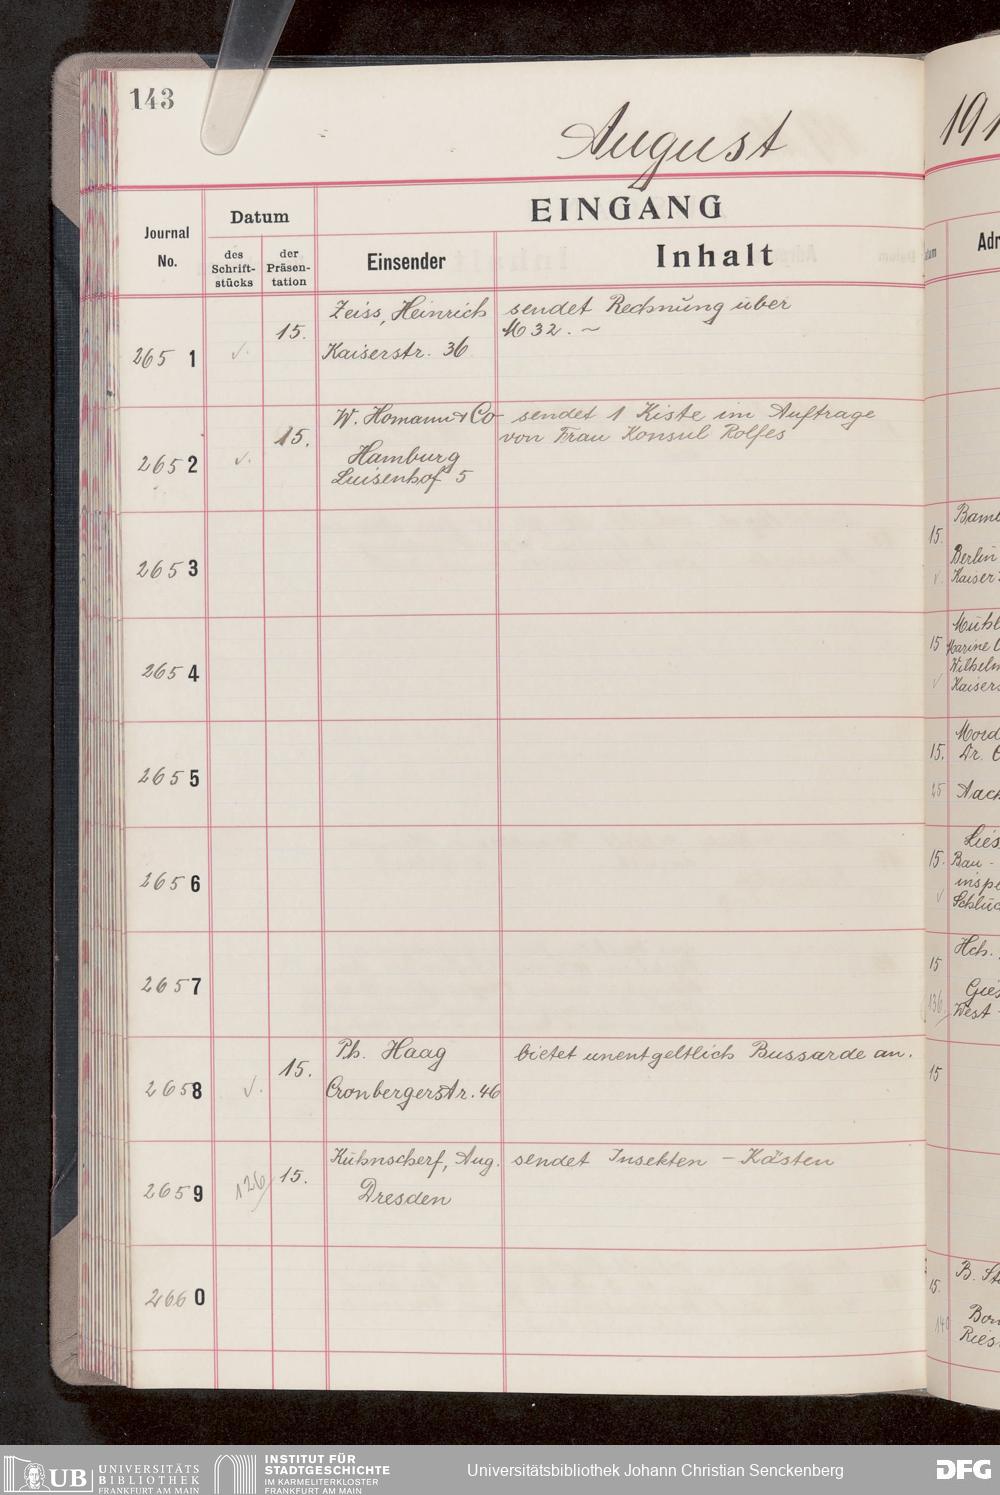 143
August
191
Journal No.
Datum
des Schrift-stücks
der Präsen-tation
EINGANG
Einsender
Inhalt
Adr
2651
15.
Zeiss, Heinrich
Kaiserstr. 36
sendet Rechnung über
M 32. –
2652
15.
W. Homann & Co
Hamburg
Luisenhof 5
sendet 1 Kiste im Auftrage
von Frau Konsul Rolfes
2653
2654
2655
2656
2657
2658
15.
Ph. Haag
Cronbergerstr. 46
bietet unentgeltlich Bussarde an.
2659
126
15.
Kühnscherf, Aug.
Dresden
sendet Insekten - Kästen
2660
15.
Berlin
Kaiser
15
15.
Dr.
25
15.
Bau -
15
136
West -
15
15.
B. St
UB UNIVERSITÄTS
BIBLIOTHEK
FRANKFURT AM MAIN
INSTITUT FÜR
STADTGESCHICHTE
IM KARMELITERKLOSTER
FRANKFURT AM MAIN
Universitätsbibliothek Johann Christian Senckenberg
DFG